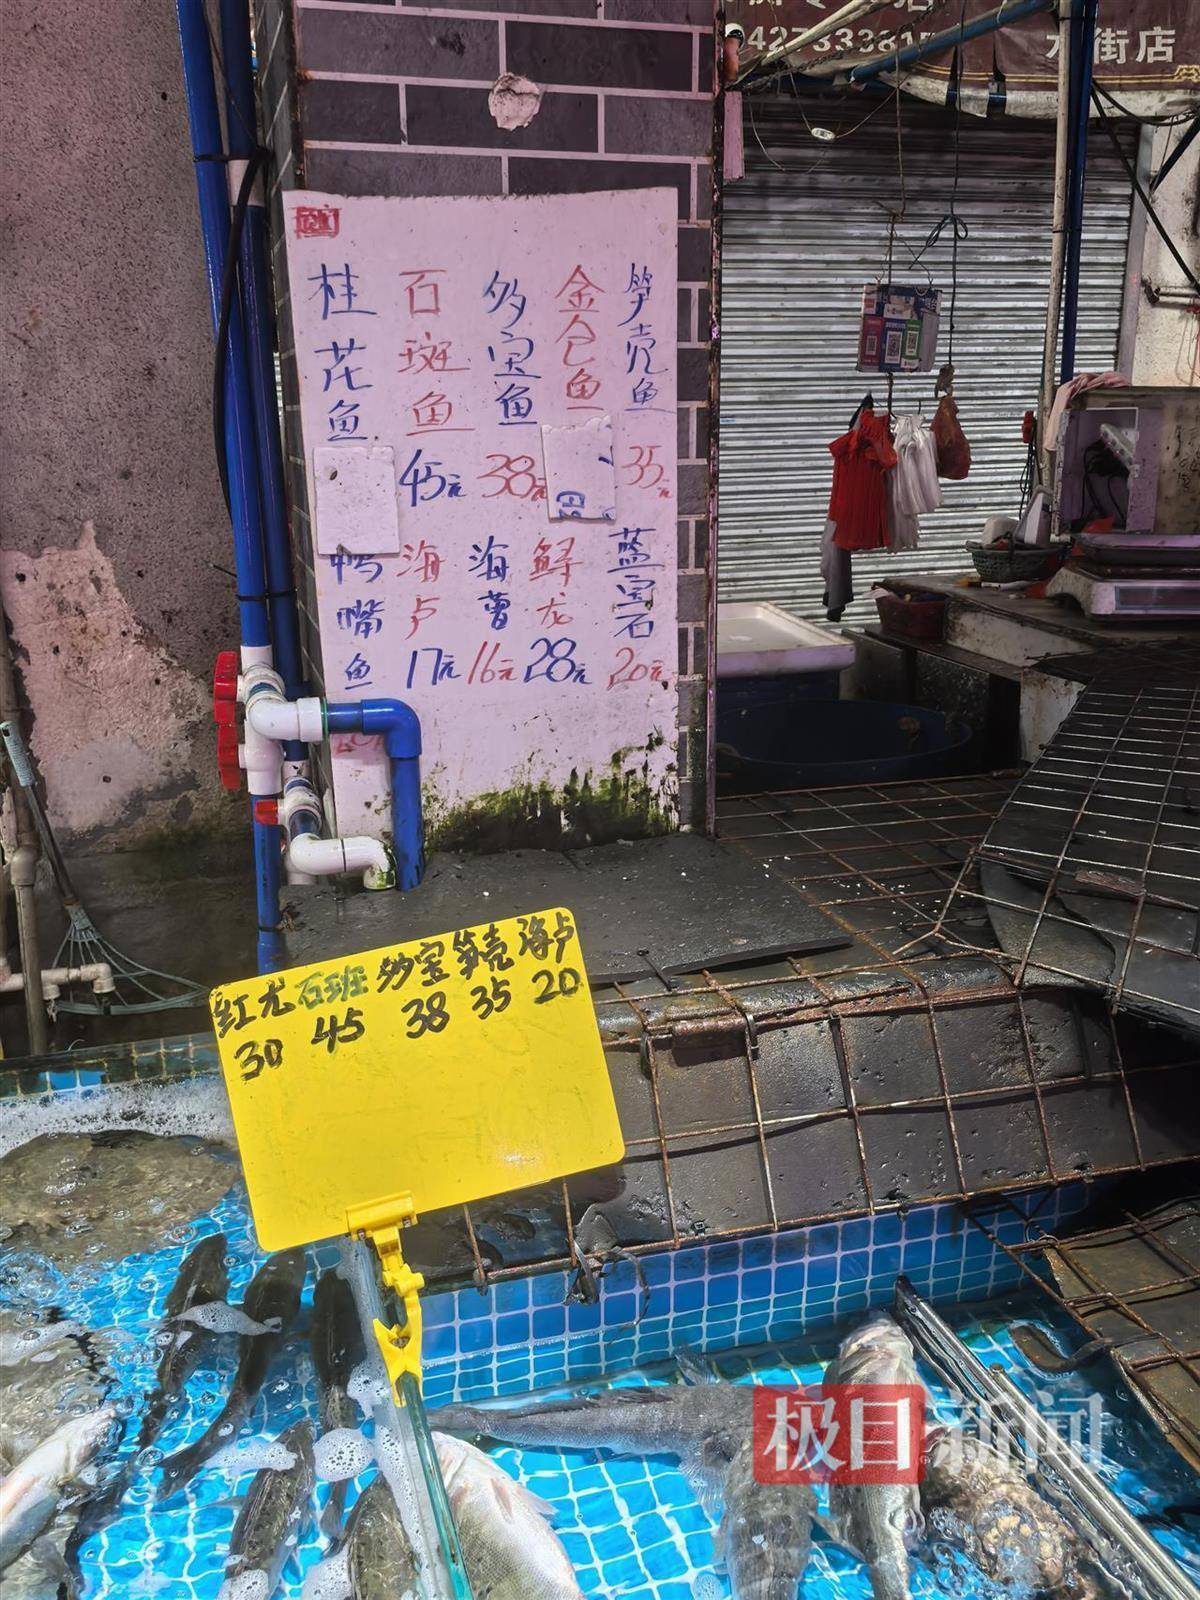 427333815
水街店
桂花鱼 石斑鱼 多宝鱼 金仓鱼 笋壳鱼
45元 38元 35元
鸭嘴鱼 海卢 海曹 鲟龙 蓝宝石
17元 16元 28元 20元
红尤 石班 多宝 笋壳 海卢
30 45 38 35 20
极目新闻